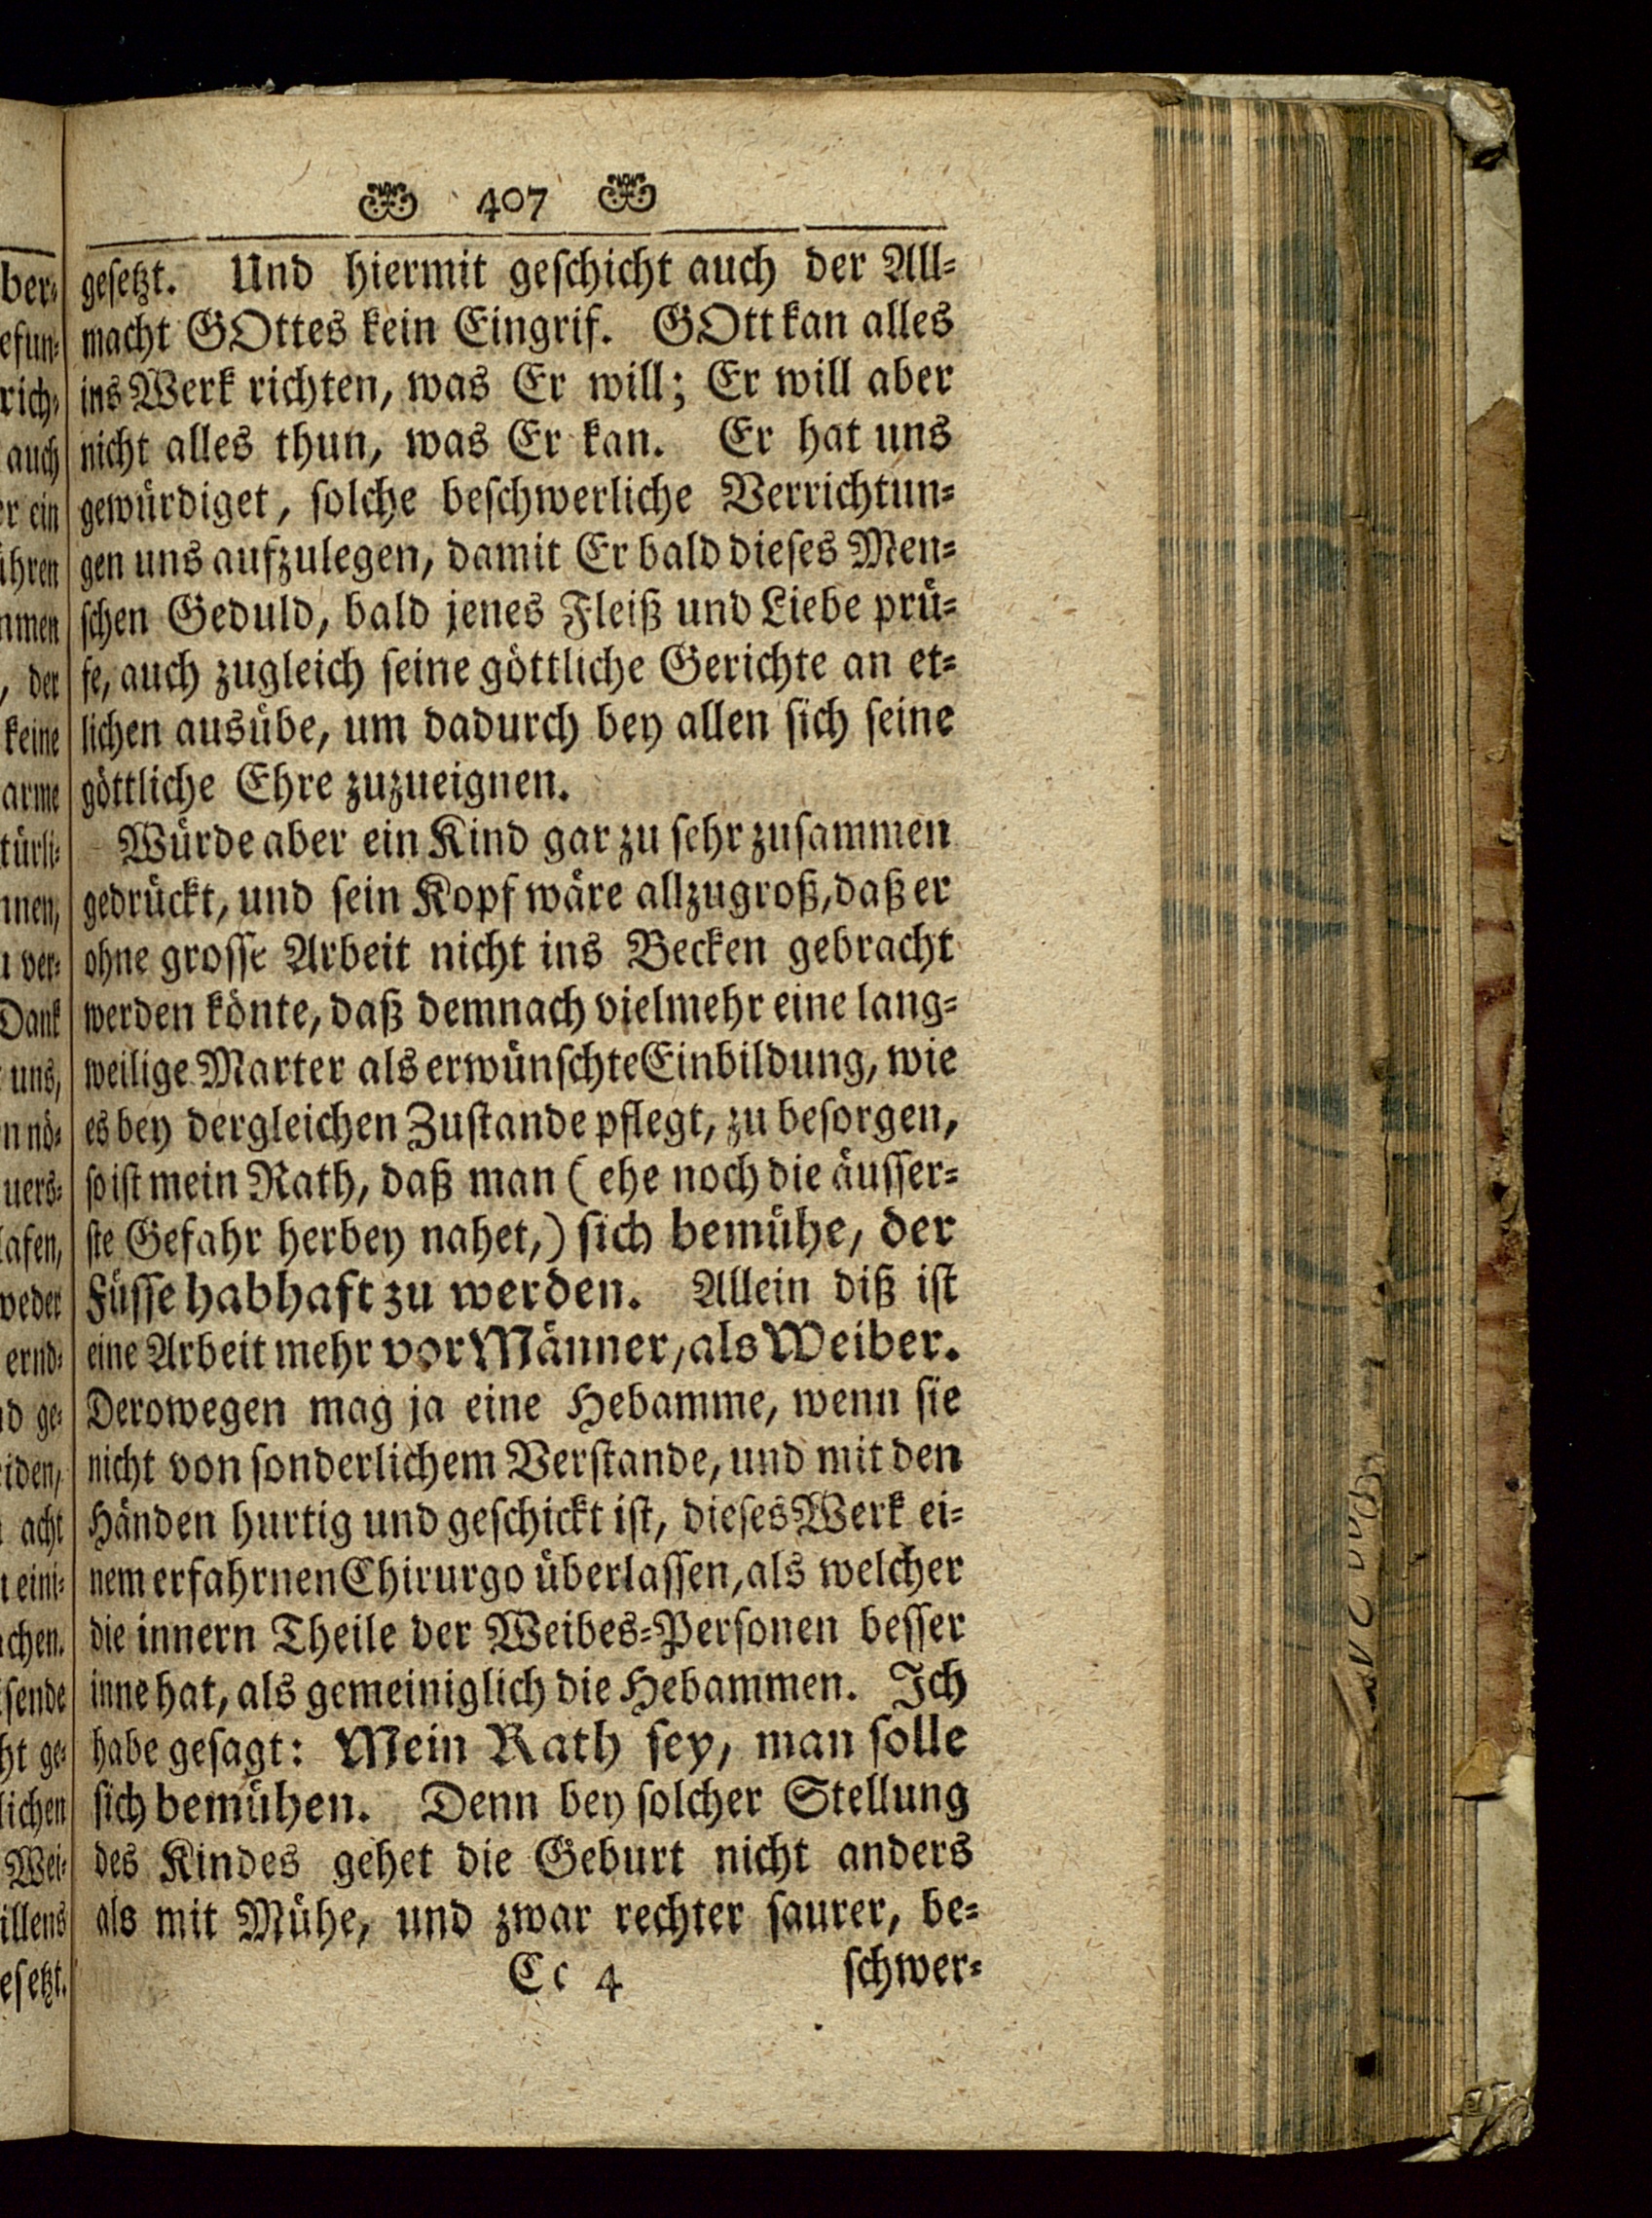 407
gesetzt. Und hiermit geschicht auch der All-
macht GOttes kein Eingrif. GOtt kan alles
ins Werk richten, was Er will; Er will aber
nicht alles thun, was Er kan. Er hat uns
gewürdiget, solche beschwerliche Verrichtun-
gen uns aufzulegen, damit Er bald dieses Men-
schen Geduld, bald jenes Fleiß und Liebe prü-
fe, auch zugleich seine göttliche Gerichte an et-
lichen ausübe, um dadurch bey allen sich seine
göttliche Ehre zuzueignen.
Würde aber ein Kind gar zu sehr zusammen
gedrückt, und sein Kopf wäre allzugroß, daß er
ohne grosse Arbeit nicht ins Becken gebracht
werden könte, daß demnach vielmehr eine lang-
weilige Marter als erwünschte Einbildung, wie
es bey dergleichen Zustande pflegt, zu besorgen,
so ist mein Rath, daß man (ehe noch die äusser-
ste Gefahr herbey nahet,) sich bemühe, der
Füsse habhaft zu werden. Allein diß ist
eine Arbeit mehr vor Männer, als Weiber.
Derowegen mag ja eine Hebamme, wenn sie
nicht von sonderlichem Verstande, und mit den
Händen hurtig und geschickt ist, dieses Werk ei-
nem erfahrnen Chirurgo überlassen, als welcher
die innern Theile der Weibes-Personen besser
inne hat, als gemeiniglich die Hebammen. Ich
habe gesagt: Mein Rath sey, man solle
sich bemühen. Denn bey solcher Stellung
des Kindes gehet die Geburt nicht anders
als mit Mühe, und zwar rechter saurer, be-
Cc 4 schwer-